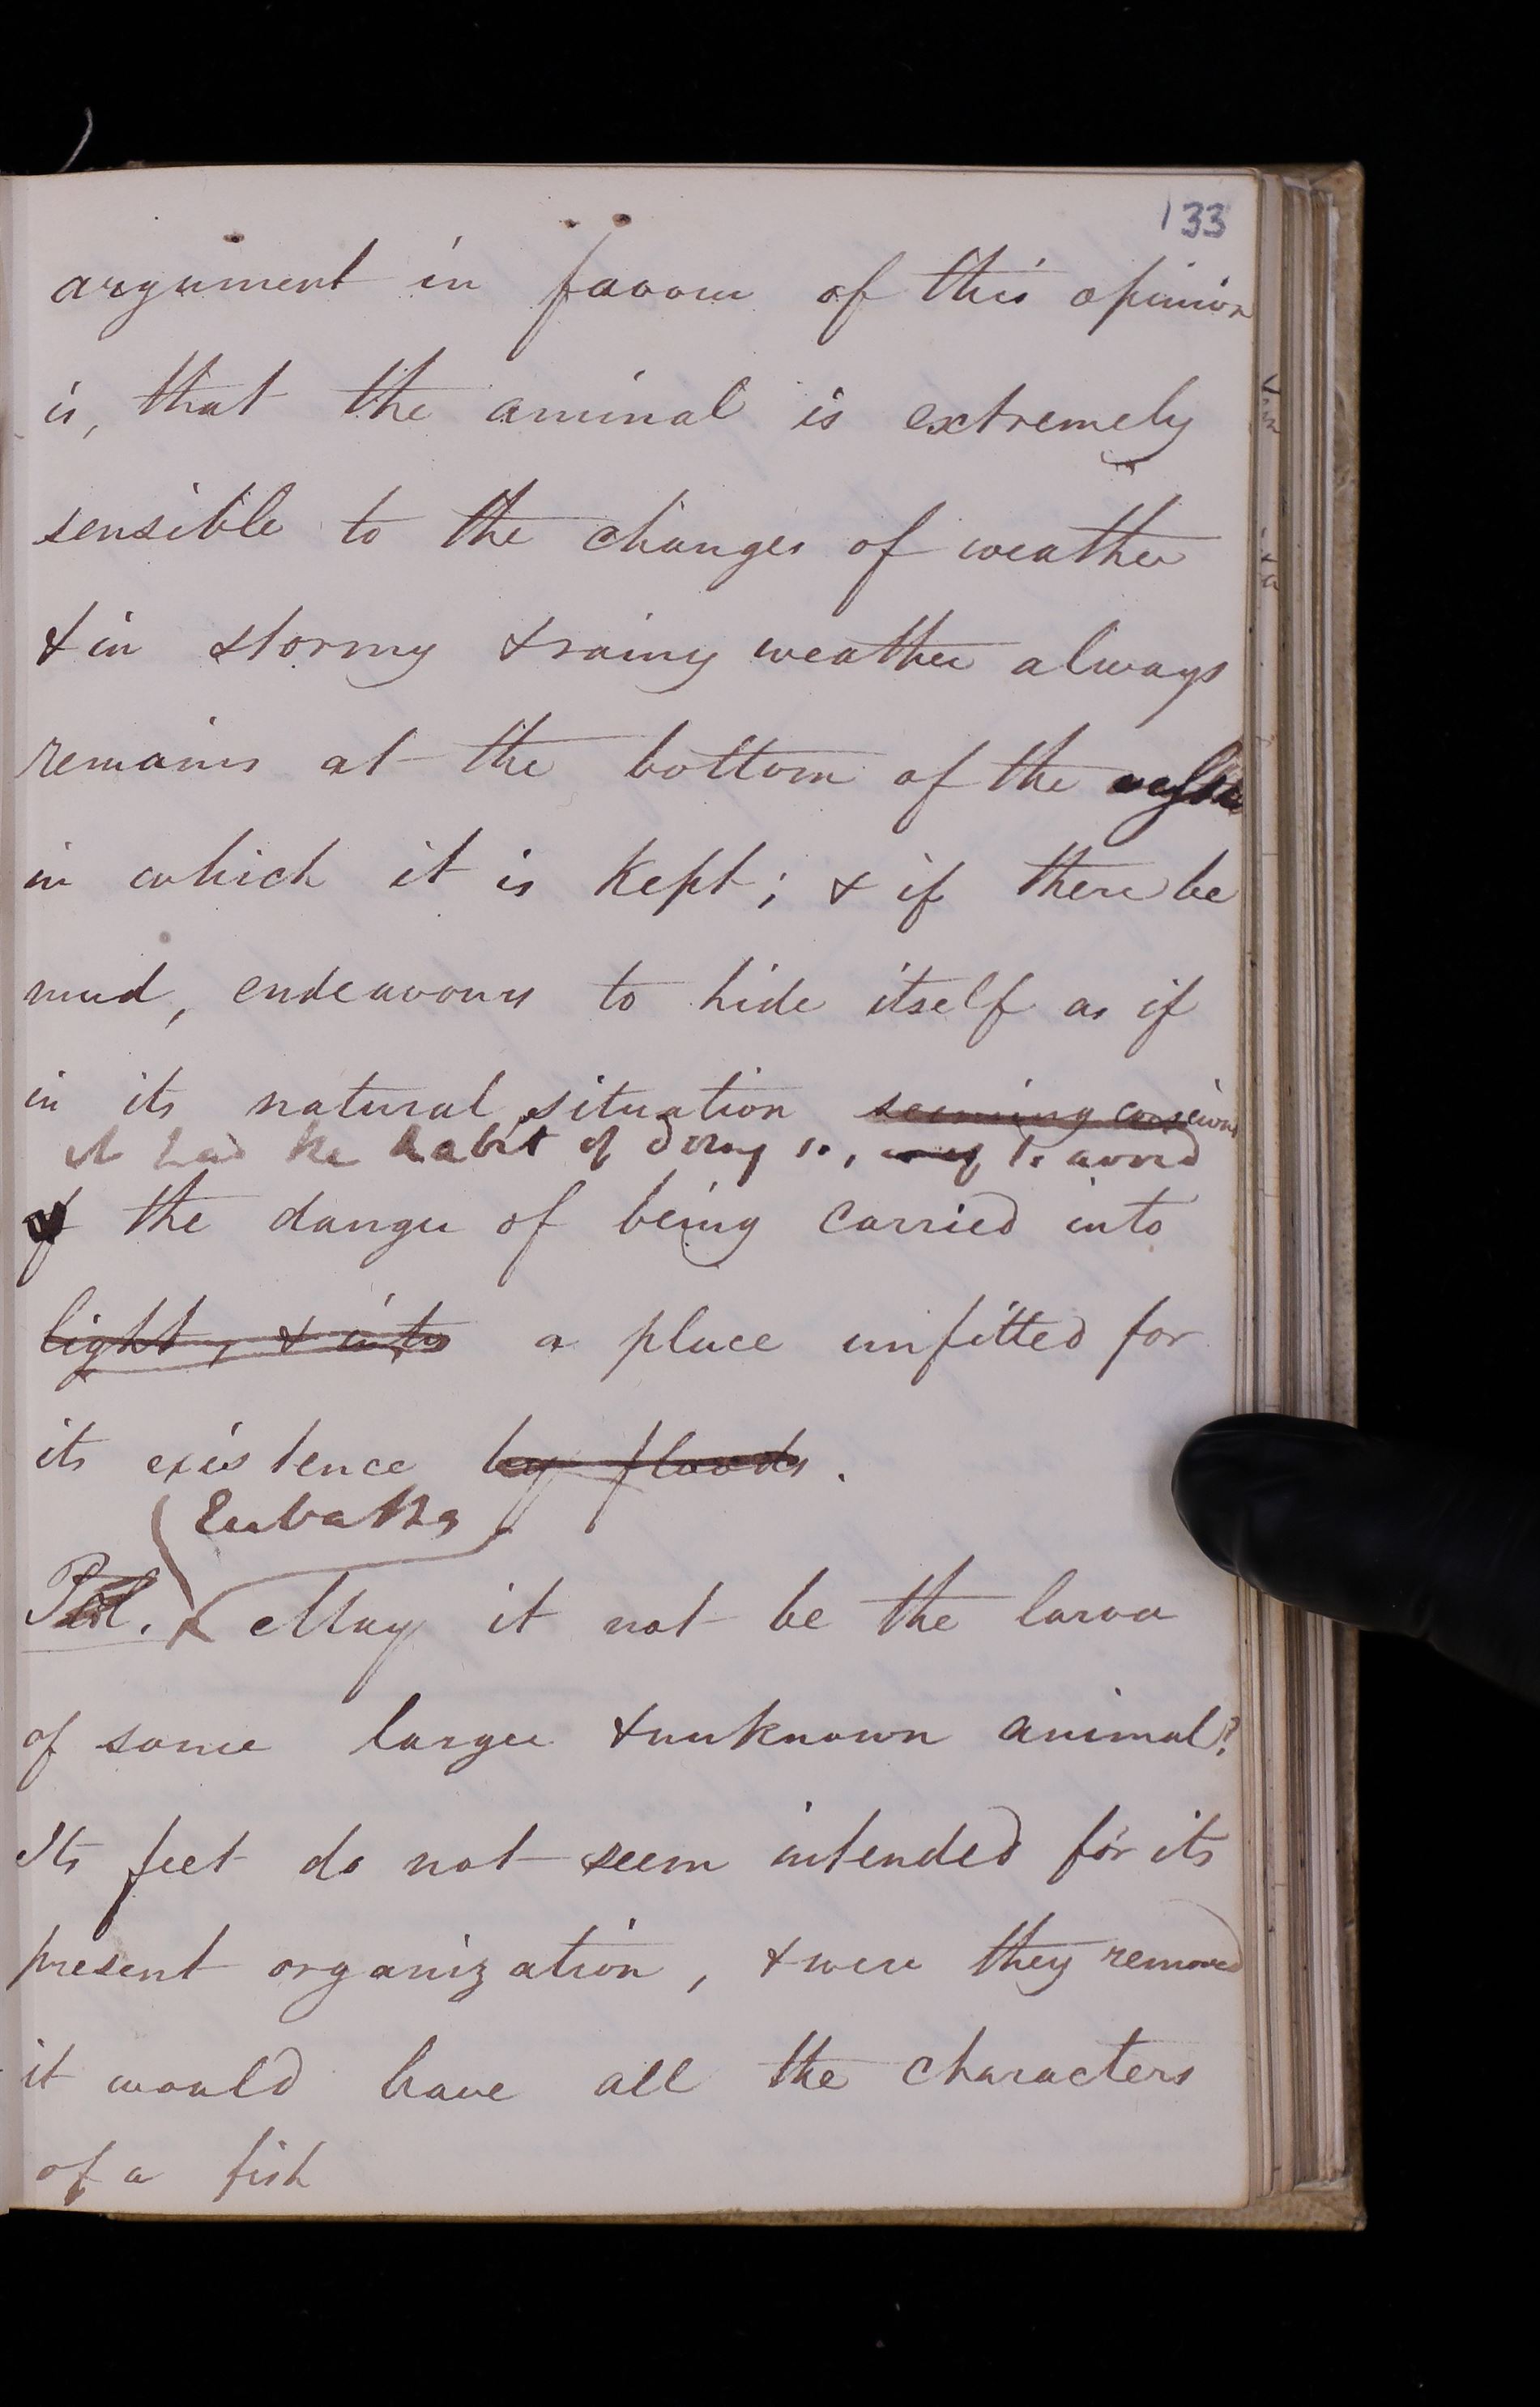 133
argument in favour of this opinion
is, that the animal is extremely
sensible to the changes of weather
& in stormy & rainy weather always
remains at the bottom of the
in which it is kept; & if there be
mud, endeavours to hide itself as if
in its natural situation seeming conscious
it had the habit of doing so, as if to avoid
of the danger of being carried into
light, & into a place unfitted for
its existence by floods.
Eubathes
Phil. May it not be the larva
of some larger & unknown animal?
Its feet do not seem intended for its
present organization, & were they removed
it would have all the characters
of a fish